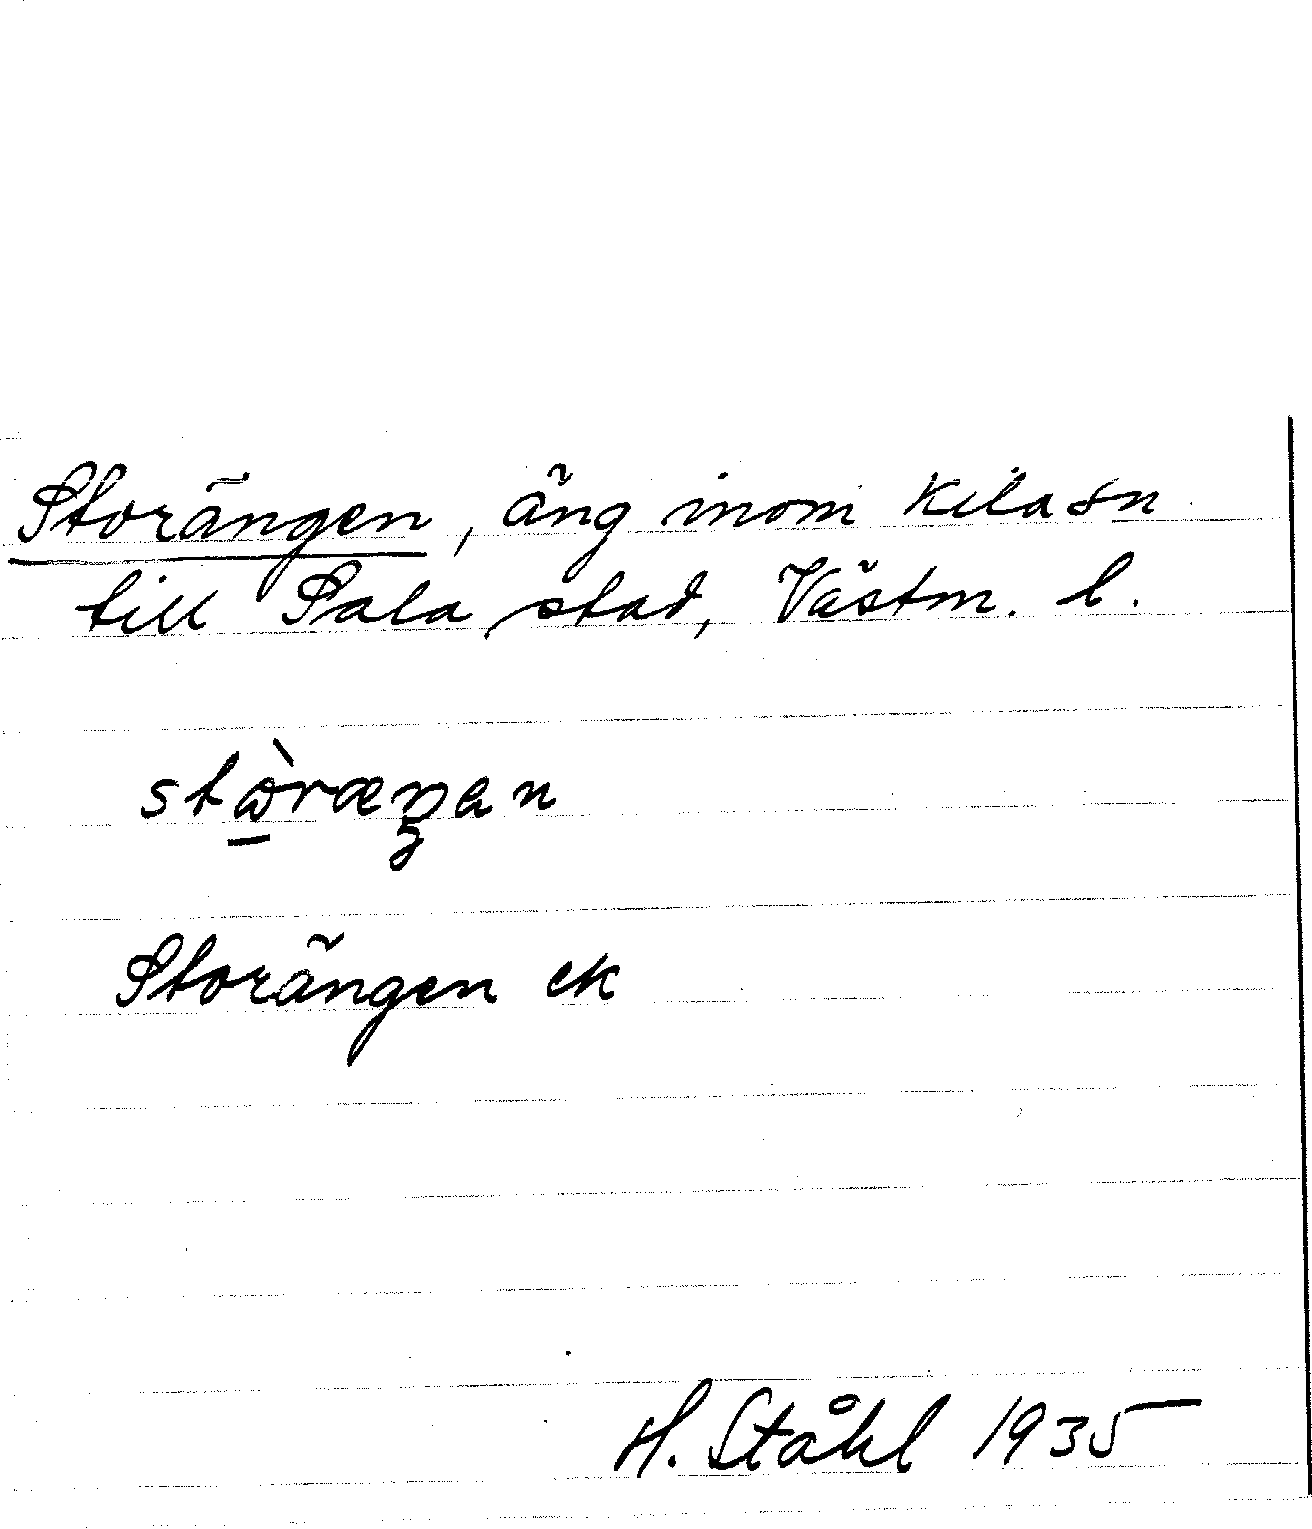 Storängen, äng inom Kila sn
till Sala stad, Västm. l.
stὼ̲ræŋan
Storängen ek
H. Ståhl 1935